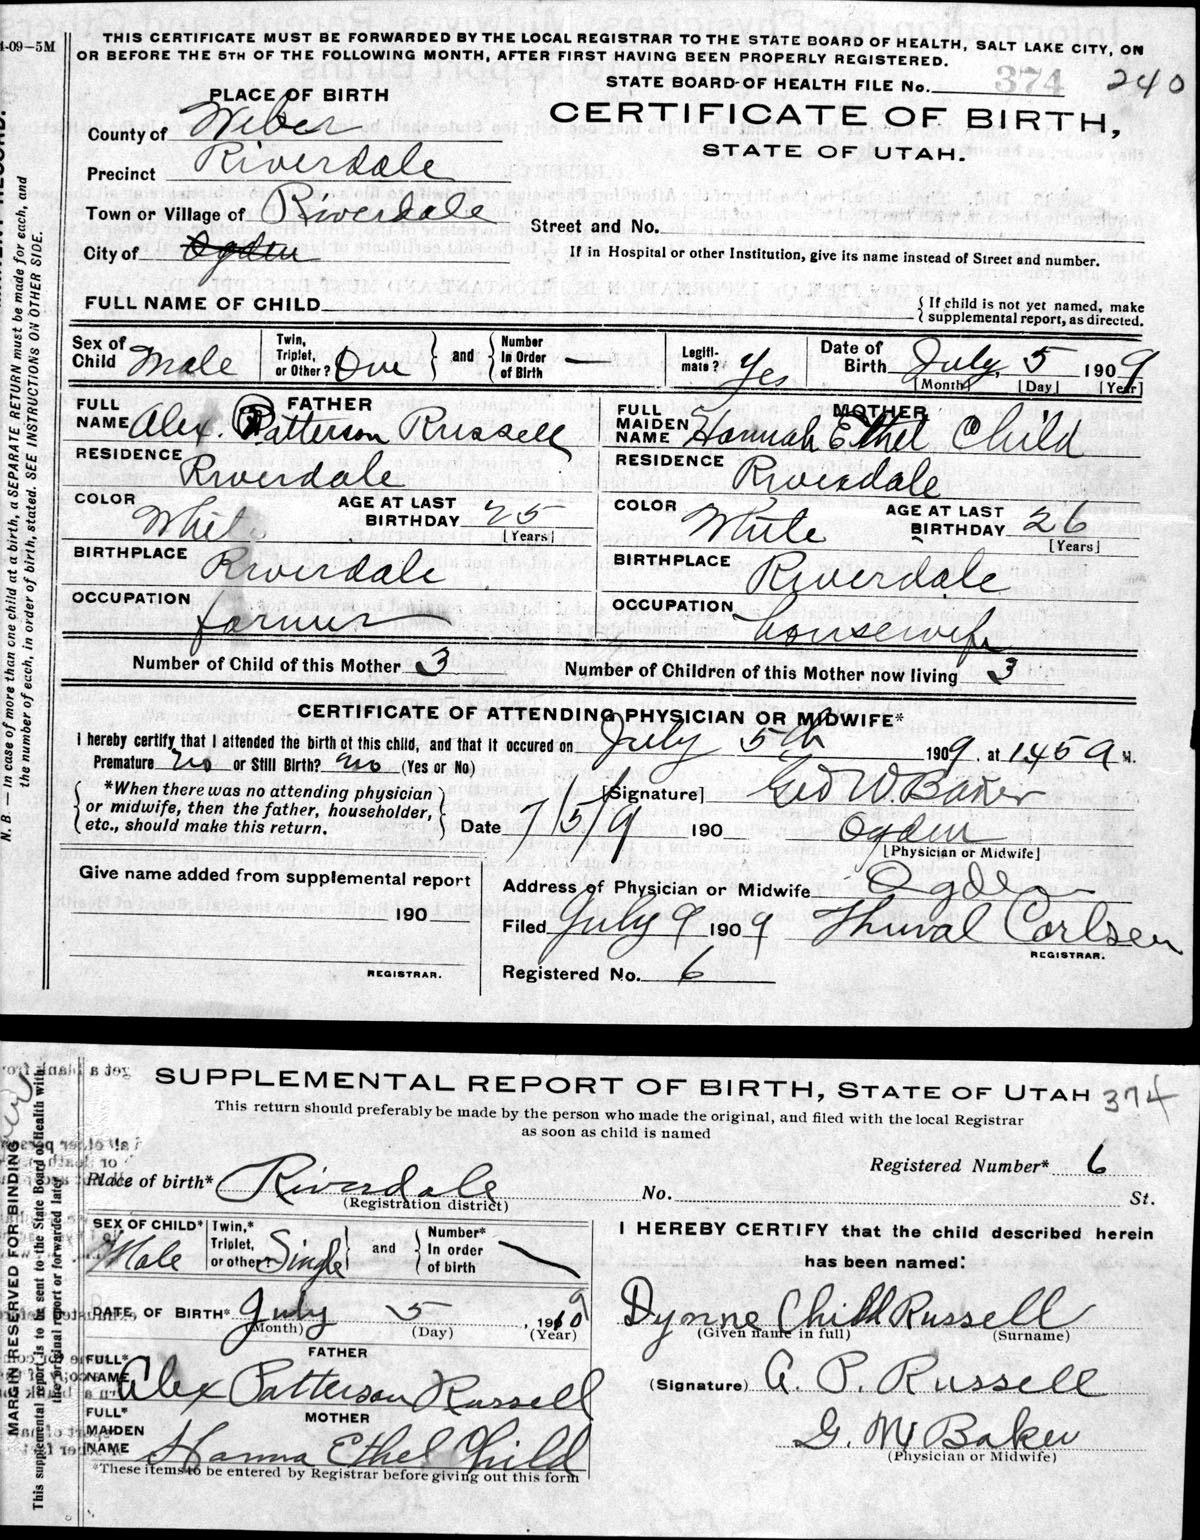 1-09—5M
THIS CERTIFICATE MUST BE FORWARDED BY THE LOCAL REGISTRAR TO THE STATE BOARD OF HEALTH, SALT LAKE CITY, ON
OR BEFORE THE 5TH OF THE FOLLOWING MONTH, AFTER FIRST HAVING BEEN PROPERLY REGISTERED.
STATE BOARD OF HEALTH FILE No. 374 240
PLACE OF BIRTH
CERTIFICATE OF BIRTH,
STATE OF UTAH.
County of Weber
Precinct Riverdale
Town or Village of Riverdale
Street and No.
City of Ogden
If in Hospital or other Institution, give its name instead of Street and number.
FULL NAME OF CHILD
If child is not yet named, make
supplemental report, as directed.
Sex of Child Male
Twin, Triplet, or Other? One and Number In Order of Birth —
Legitimate? Yes
Date of Birth July 5 1909
[Month] [Day] [Year]
FATHER
FULL NAME Alex. Patterson Russell
RESIDENCE Riverdale
COLOR Whit
AGE AT LAST BIRTHDAY 25
[Years]
BIRTHPLACE Riverdale
OCCUPATION farmer
MOTHER
FULL MAIDEN NAME Hannah Ethel Child
RESIDENCE Riverdale
COLOR White
AGE AT LAST BIRTHDAY 26
[Years]
BIRTHPLACE Riverdale
OCCUPATION housewife
Number of Child of this Mother 3
Number of Children of this Mother now living 3
CERTIFICATE OF ATTENDING PHYSICIAN OR MIDWIFE*
I hereby certify that I attended the birth of this child, and that it occured on July 5th 1909, at 1.45 a M.
Premature no or Still Birth? no (Yes or No)
*When there was no attending physician
or midwife, then the father, householder,
etc., should make this return.
[Signature] Geo W. Baker
Date 7/5/9 190
Ogden
[Physician or Midwife]
Give name added from supplemental report
190
REGISTRAR.
Address of Physician or Midwife Ogden
Filed July 9 1909 Thuval Carlsen
REGISTRAR.
Registered No. 6
N. B. — In case of more than one child at a birth, a SEPARATE RETURN must be made for each, and
the number of each, in order of birth, stated. SEE INSTRUCTIONS ON OTHER SIDE.
SUPPLEMENTAL REPORT OF BIRTH, STATE OF UTAH 374
This return should preferably be made by the person who made the original, and filed with the local Registrar
as soon as child is named
Registered Number* 6
Place of birth* Riverdale
(Registration district)
No. St.
SEX OF CHILD* Male
Twin,* Triplet, or other? Single and Number* In order of birth
DATE OF BIRTH* July 5, 19
(Month) (Day) (Year)
FATHER
FULL* NAME Alex Patterson Russell
MOTHER
FULL* MAIDEN NAME Hanna Ethel Child
*These items to be entered by Registrar before giving out this form
I HEREBY CERTIFY that the child described herein
has been named:
Dynne Child Russell
(Given name in full) (Surname)
(Signature) A. P. Russell
G. W Baker
(Physician or Midwife)
MARGIN RESERVED FOR BINDING
This supplemental report is to be sent to the State Board of Health with
the original report or forwarded later